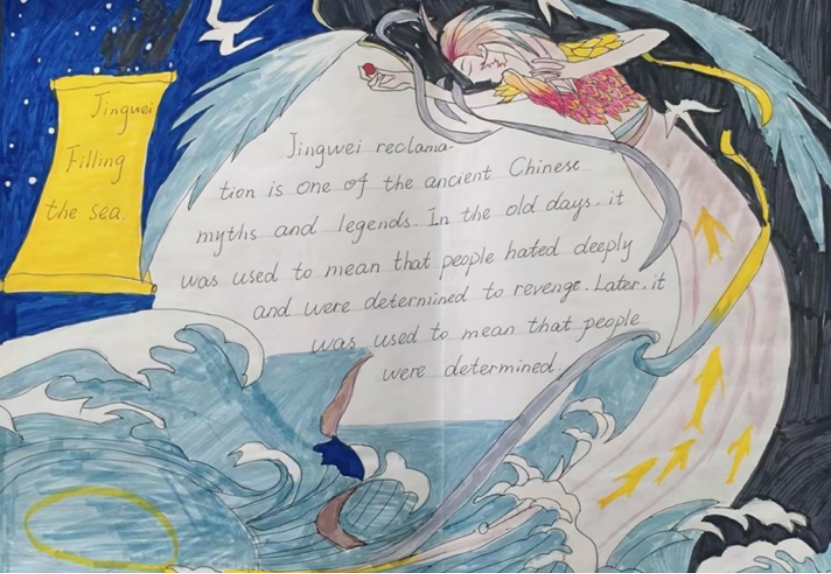 Jingwei
Filling
the sea.
Jingwei reclama-
tion is one of the ancient Chinese
myths and legends. In the old days. it
was used to mean that people hated deeply
and were determined to revenge. Later, it
was used to mean that people
were determined.